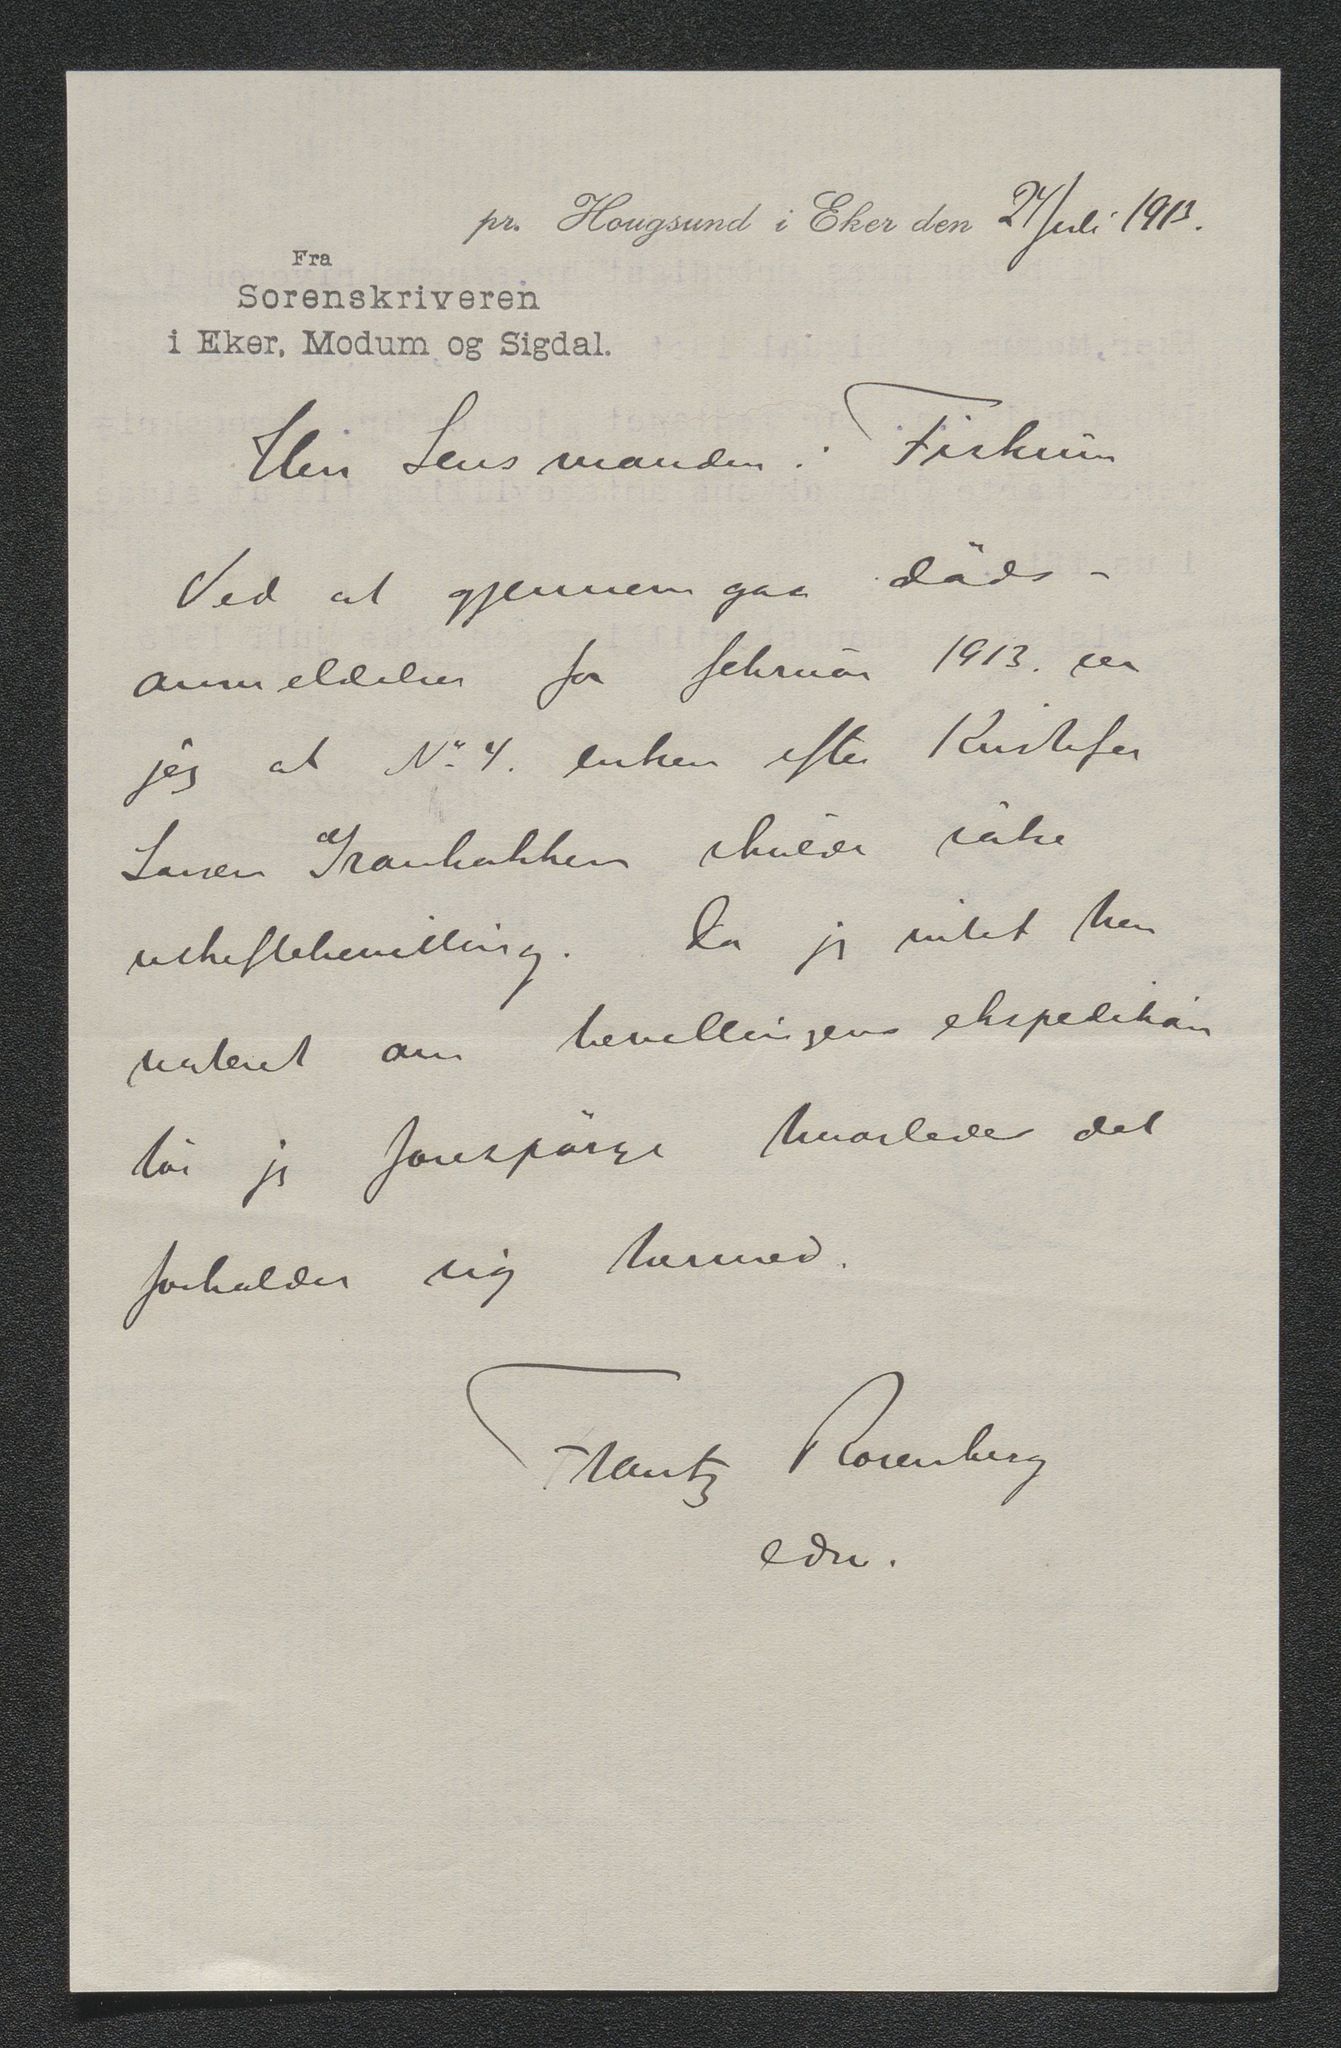 pr. Hougsund i Eker den 24/Juli 1913.
Fra
Sorenskriveren
i Eker, Modum og Sigdal.
Herr Lensmanden i Fiskum
Ved at gjennemgaa döds-
anmeldelser for februar 1913. ser
jeg at No 4. enken efter Kristofer
Larsen Granbakken skulde söke
uskiftebevilling. Da jeg intet har
noteret om bevillingens ekspedition
tör jeg forespörge hvorledes det
forholder sig hermed.
Frantz Rosenberg
edsv.